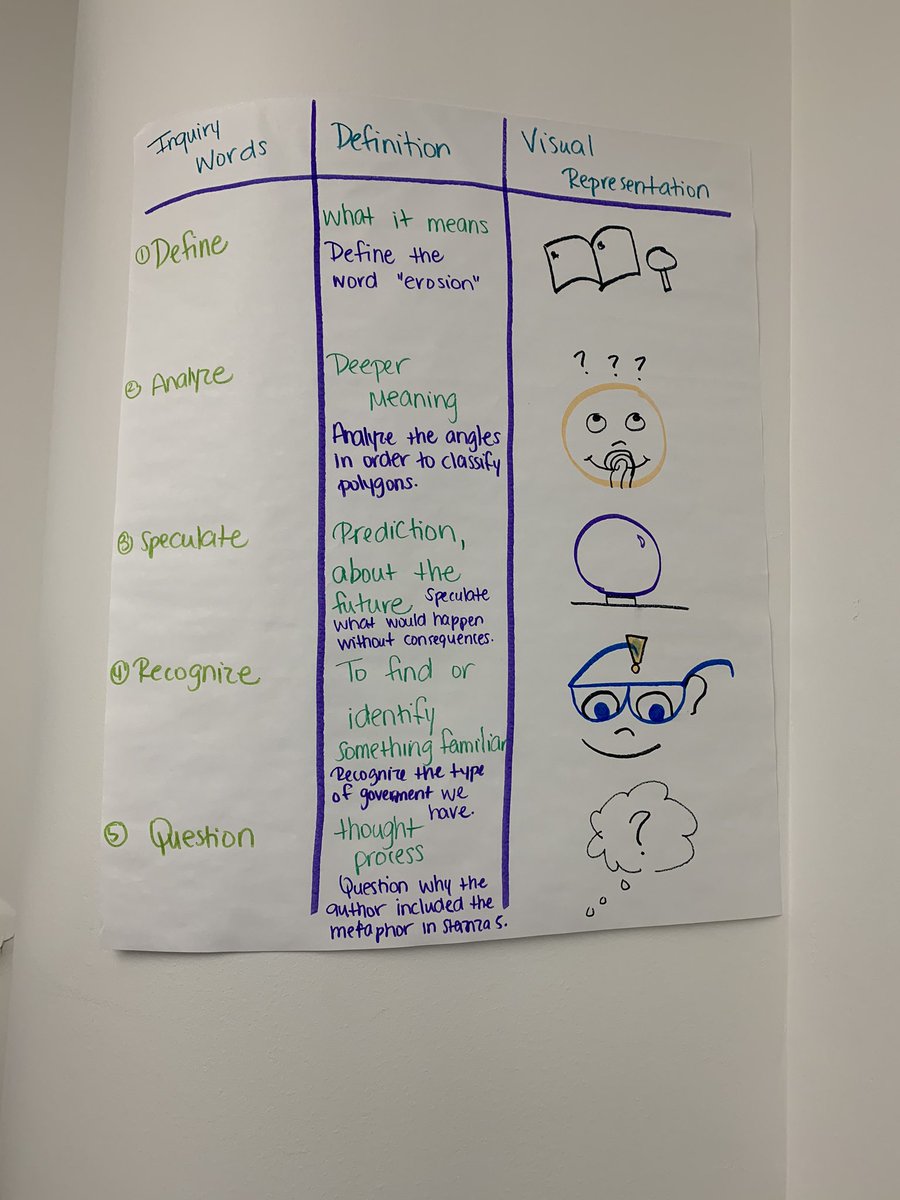 Inquiry Words
Definition
Visual Representation
① Define
What it means
Define the
word "erosion"
② Analyze
Deeper
Meaning
Analyze the angles
in order to classify
polygons.
? ? ?
③ Speculate
Prediction,
about the
future Speculate
what would happen
without consequences.
④ Recognize
To find or
identify
something familiar
Recognize the type
of goverment we
have.
!
⑤ Question
thought
process
Question why the
author included the
metaphor in stanza 5.
?